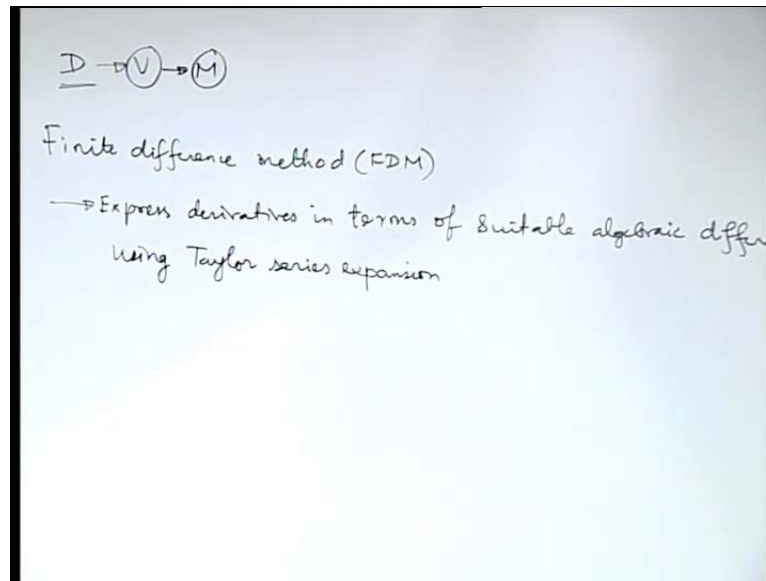 D → V → M
Finite difference method (FDM)
→ Express derivatives in terms of suitable algebraic differ
using Taylor series expansion